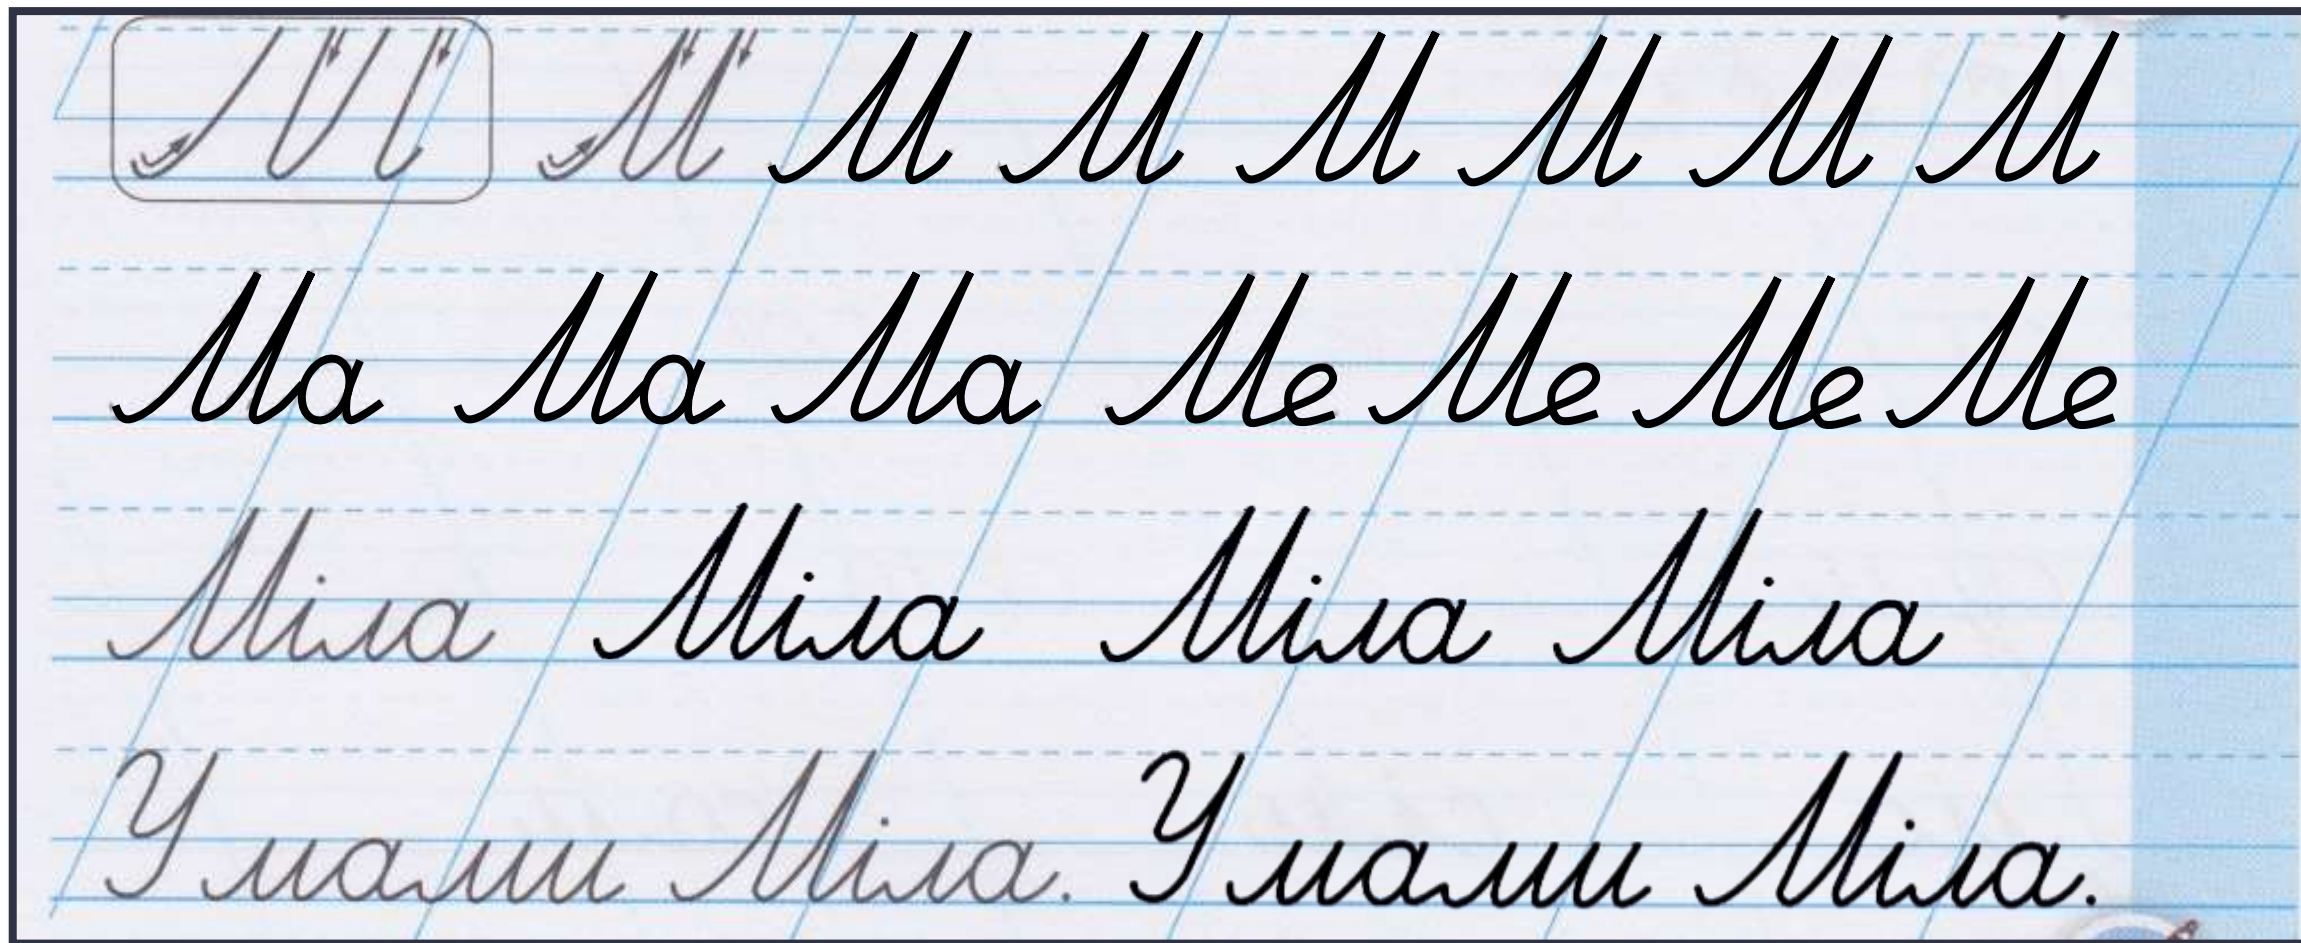 М М М М М М М
Ма Ма Ма Ме Ме Ме Ме
Міла Міла Міла Міла
У мами Міла. У мами Міла.